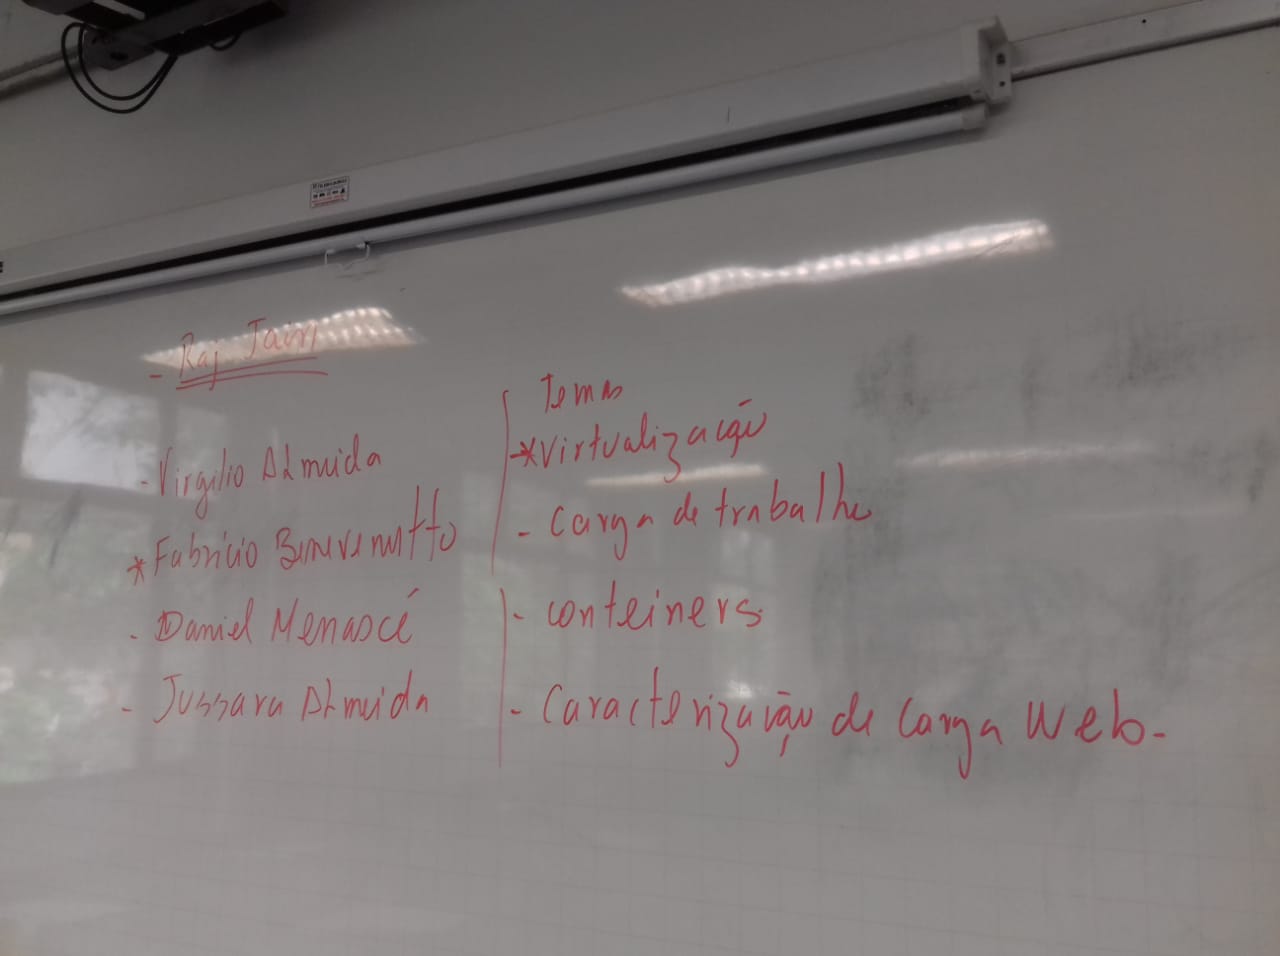 - Raj Jain
- Virgílio Almeida
* Fabrício Benevenutto
- Daniel Menascé
- Jussara Almeida
Temas
* Virtualização
- Carga de trabalho
- conteiners
- Caracterização de Carga Web.